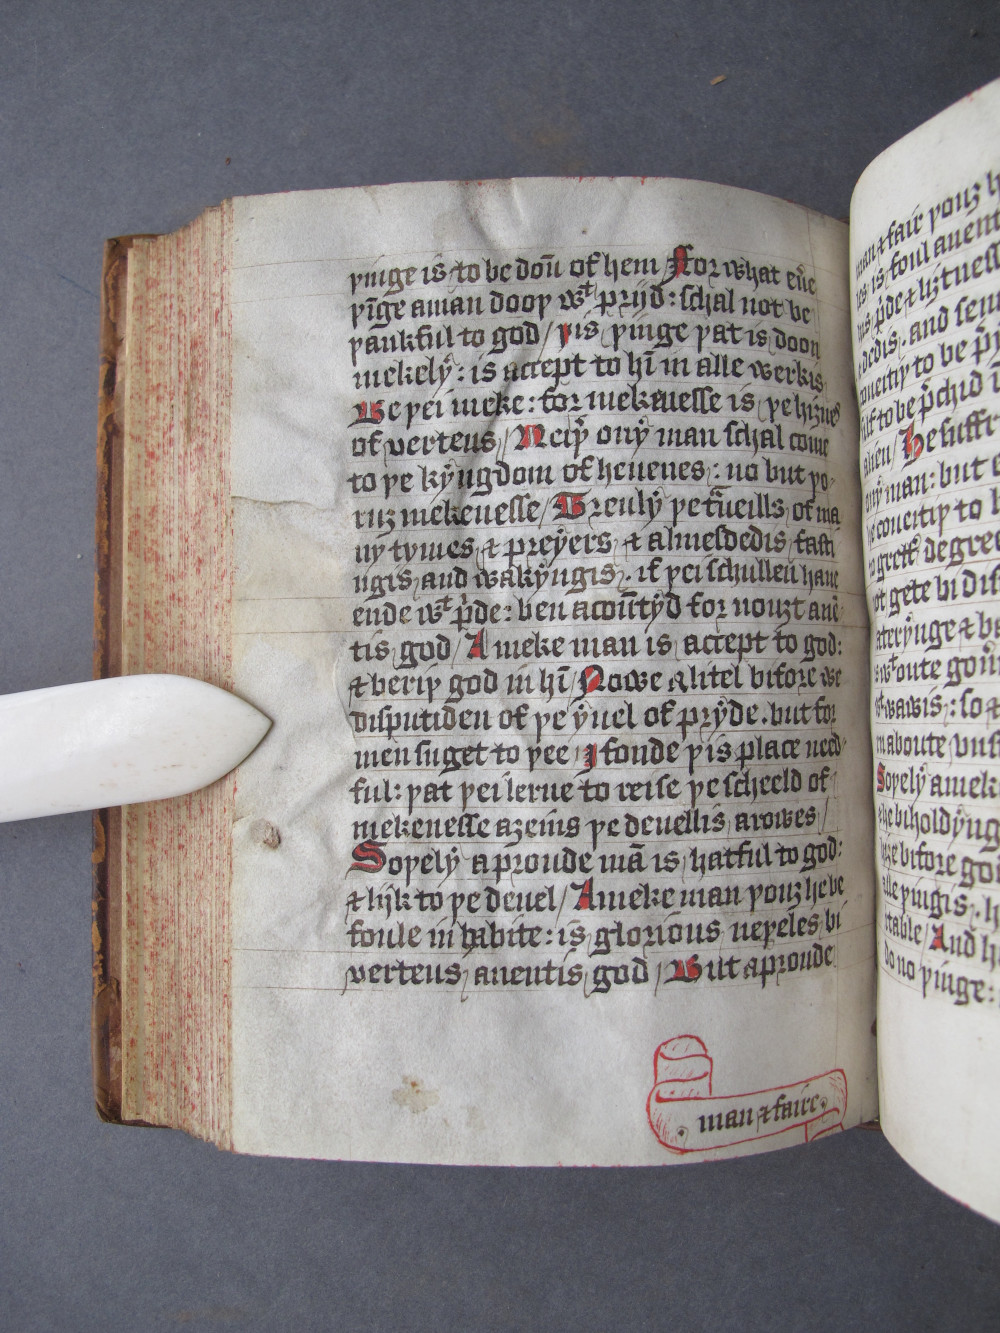 þinge is to be doū of hem / For what eūe
þīge a man dooþ wᵗ prijd : schal not be
þankful to god / þis þinge þat is doon
mekelẏ : is accept to hī in alle werkis
Be þei meke : for mekenesse is þe hiznes
of verteus / Neiþ onẏ man schal come
to þe kẏngdom of heuenes : no but þo-
ruz mekenesse / Treulẏ þe t̄ueills of ma
ny tymes & preẏers & almesdedis fasti
ngis and wakẏngis . if þei schullen haue
ende wᵗ p̄de : ben acoūtẏd for nouzt anē
tis god / A meke man is accept to god :
& beriþ god in hī / Nowe a litel bifore we
disputiden of þe ẏuel of prẏde . but for
men suget to þee / I fonde þis place need
ful : þat þei lerne to reise þe scheeld of
mekenesse azeins þe deuellis arowes /
Soþelẏ a proude mā is hatful to god :
& lijk to þe deuel / A meke man þouz he be
foule in habite : is glorious neþeles bi
verteus anentis god / But a proude
man & faire
man & fair þouz h
es is foul anent
p̄de & liztness
dedis . and sem
coueitiþ to be
to be p̄chid
alien / He suffr
onẏ man : but
he coueitiþ to
grett degree
gete bi dis
aterẏnge & b
wᵗoute gou
wawis : so
aboute
Soþelẏ a mek
he biholdẏng
bifore go
alle þingis . h
stable / And h
do no þinge :